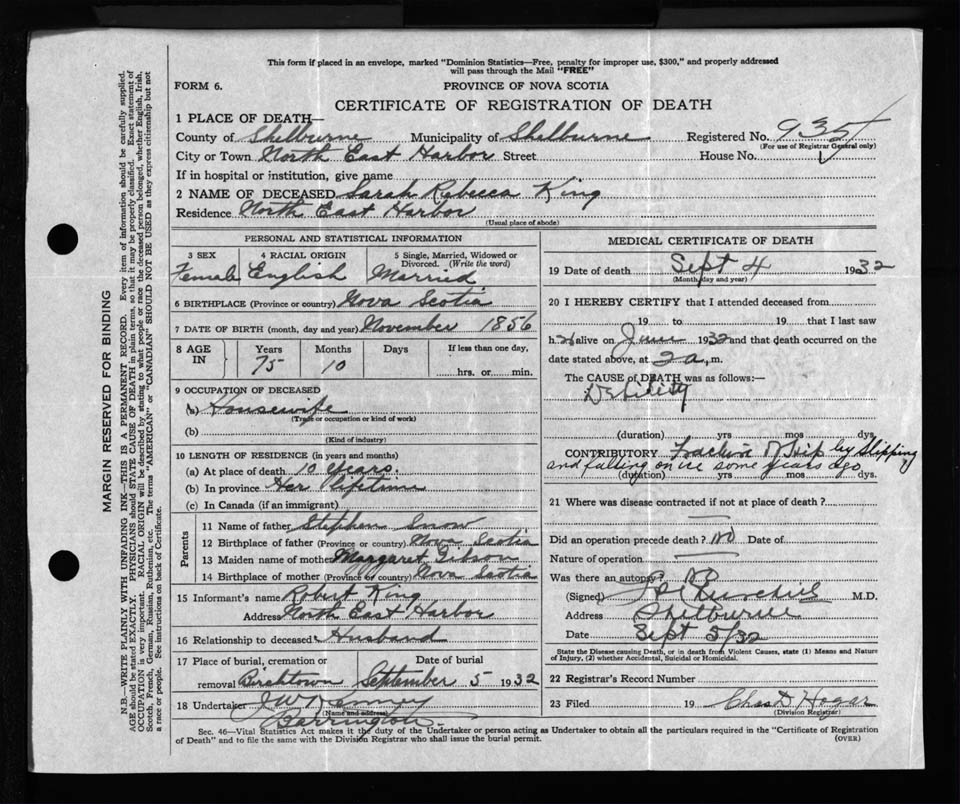 This form if placed in an envelope, marked "Dominion Statistics—Free, penalty for improper use, $300," and properly addressed
will pass through the Mail "FREE"
FORM 6.
PROVINCE OF NOVA SCOTIA
CERTIFICATE OF REGISTRATION OF DEATH
1 PLACE OF DEATH—
County of Shelburne Municipality of Shelburne Registered No. 935
(For use of Registrar General only)
City or Town North East Harbor Street House No.
If in hospital or institution, give name
2 NAME OF DECEASED Sarah Rebecca King
Residence North East Harbor
(Usual place of abode)
MARGIN RESERVED FOR BINDING
N.B.—WRITE PLAINLY WITH UNFADING INK—THIS IS A PERMANENT RECORD. Every item of information should be carefully supplied.
AGE should be stated EXACTLY. PHYSICIANS should STATE CAUSE OF DEATH in plain terms, so that it may be properly classified. Exact statement of
OCCUPATION is very important. RACIAL ORIGIN will be described by stating to what people or race the deceased person belonged, whether English, Irish,
Scotch, French, German, Russian, Ruthenian, etc. The terms "AMERICAN" or "CANADIAN" SHOULD NOT BE USED as they express citizenship but not
a race or people. See instructions on back of Certificate.
PERSONAL AND STATISTICAL INFORMATION
3 SEX 4 RACIAL ORIGIN 5 Single, Married, Widowed or
Divorced. (Write the word)
Female English Married
6 BIRTHPLACE (Province or country) Nova Scotia
7 DATE OF BIRTH (month, day and year) November 1856
8 AGE IN Years Months Days If less than one day,
75 10 hrs. or min.
9 OCCUPATION OF DECEASED
(a) Housewife
(Trade or occupation or kind of work)
(b)
(Kind of industry)
10 LENGTH OF RESIDENCE (in years and months)
(a) At place of death 10 Years
(b) In province Her Liftime
(c) In Canada (if an immigrant)
Parents
11 Name of father Stephen Snow
12 Birthplace of father (Province or country) Nova Scotia
13 Maiden name of mother Margaret Gibson
14 Birthplace of mother (Province or country) Nova Scotia
15 Informant's name Robert King
Address North East Harbor
16 Relationship to deceased Husband
17 Place of burial, cremation or Date of burial
removal Birchtown September 5 1932
18 Undertaker
(Name and address)
Barrington
MEDICAL CERTIFICATE OF DEATH
19 Date of death Sept 4 1932
(Month, day and year)
20 I HEREBY CERTIFY that I attended deceased from
19 to 19 that I last saw
h alive on June 1932 and that death occurred on the
date stated above, at 2 a, m.
The CAUSE of DEATH was as follows:—
Debility
(duration) yrs mos dys.
CONTRIBUTORY Fracture of hip by slipping
and falling on ice some years ago
(duration) yrs. mos. dys.
21 Where was disease contracted if not at place of death?
Did an operation precede death? No Date of
Nature of operation
Was there an autopsy? No
(Signed) Churchill M.D.
Address Shelburne
Date Sept 5/32
State the Disease causing Death, or in death from Violent Causes, state (1) Means and Nature
of Injury, (2) whether Accidental, Suicidal or Homicidal.
22 Registrar's Record Number
23 Filed 19 Chas D Hagar
(Division Registrar)
Sec. 46—Vital Statistics Act makes it the duty of the Undertaker or person acting as Undertaker to obtain all the particulars required in the "Certificate of Registration
of Death" and to file the same with the Division Registrar who shall issue the burial permit.
(OVER)